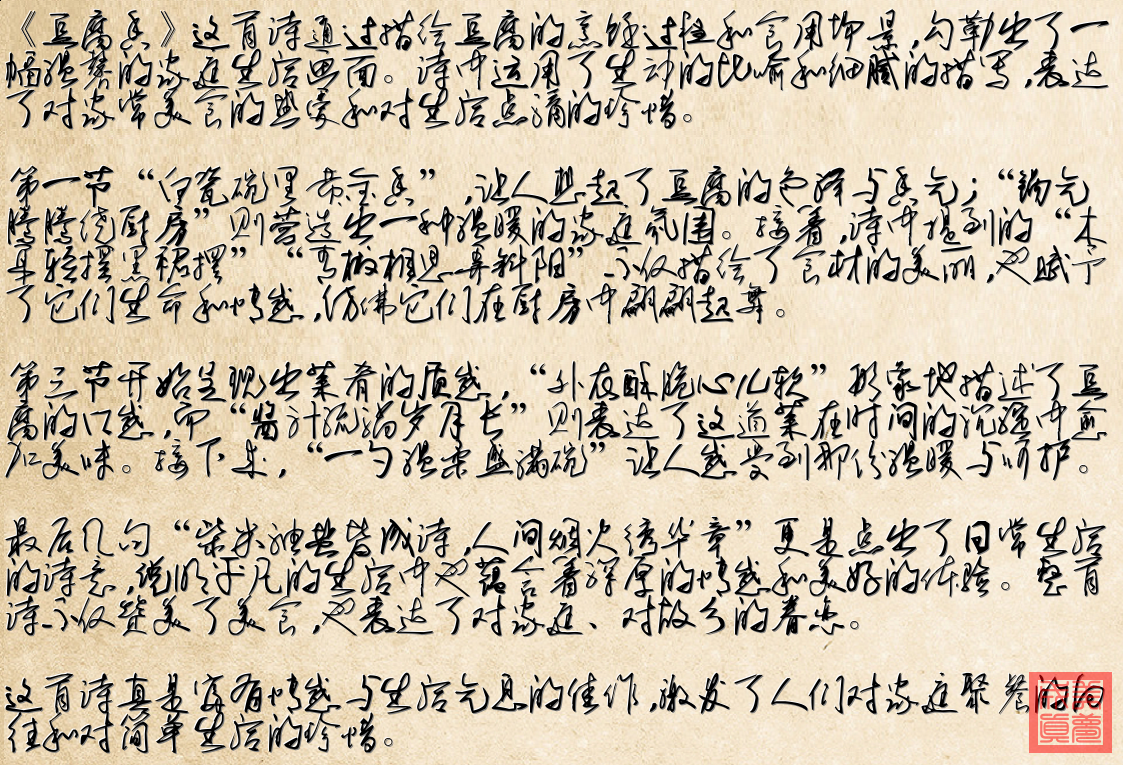 《豆腐香》这首诗通过描绘豆腐的烹饪过程和食用场景，勾勒出了一
幅温馨的家庭生活画面。诗中运用了生动的比喻和细腻的描写，表达
了对家常美食的喜爱和对生活点滴的珍惜。
第一节“白瓷碗里黄金香”，让人想起了豆腐的色泽与香气；“锅气
腾腾绕厨房”则营造出一种温暖的家庭氛围。接着，诗中提到的“木
耳轻摆黑裙摆”“青椒相思舞斜阳”不仅描绘了食材的美丽，也赋予
了它们生命和情感，仿佛它们在厨房中翩翩起舞。
第三节开始呈现出菜肴的质感，“外衣酥脆心儿软”形象地描述了豆
腐的口感，而“酱汁流淌岁月长”则表达了这道菜在时间的沉淀中愈
加美味。接下来，“一勺温柔盛满碗”让人感受到那份温暖与呵护。
最后几句“柴米油盐皆成诗，人间烟火绣华章”更是点出了日常生活
的诗意，说明平凡的生活中也蕴含着深厚的情感和美好的体验。整首
诗不仅赞美了美食，也表达了对家庭、对故乡的眷恋。
这首诗真是富有情感与生活气息的佳作，激发了人们对家庭聚餐的向
往和对简单生活的珍惜。